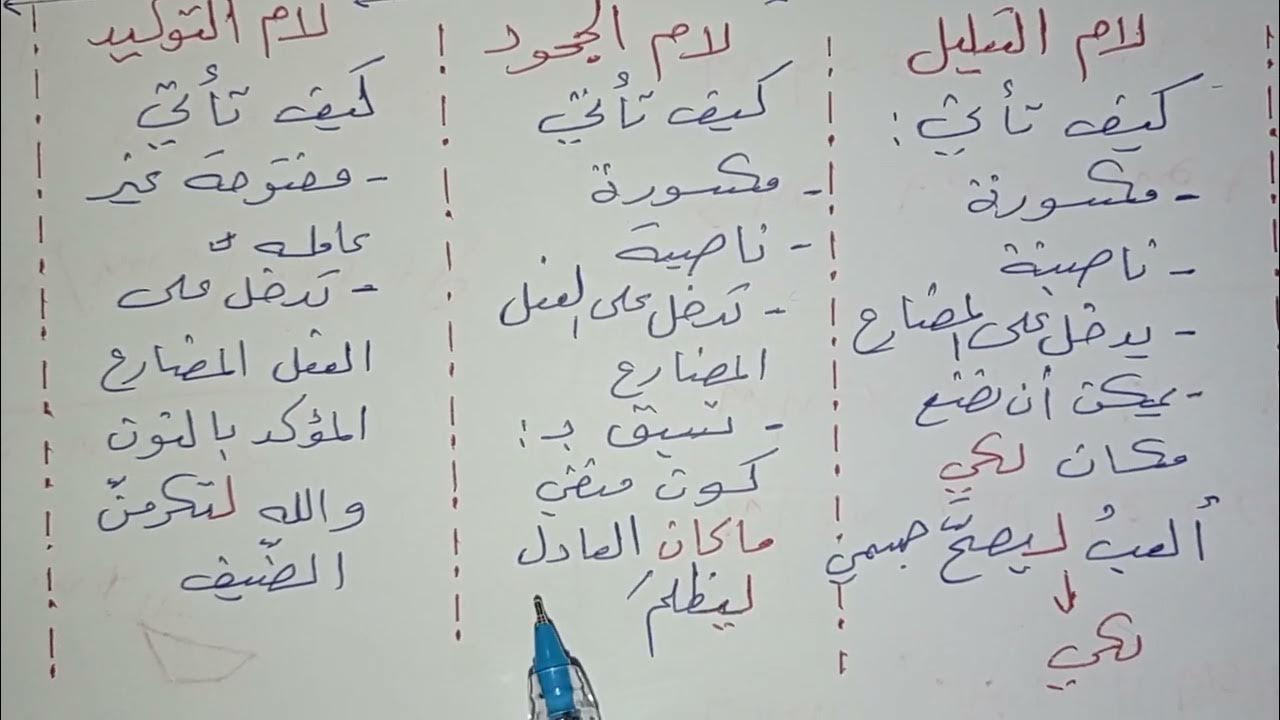 لام التعليل
كيف تأتي:
- مكسورة
- ناصبة
- يدخل على المضارع
- يمكن أن نضع
مكان لكي
ألعبُ ليصحَّ جسمي
لكي
لام الجحود
كيف تأتي
- مكسورة
- ناصبة
- تدخل على الفعل
المضارع
- تسبق بـ:
كون منفي
ماكان العادل
ليظلمَ
لام التوكيد
كيف تأتي
- مفتوحة غير
عاملة
- تدخل على
الفعل المضارع
المؤكد بالنون
والله لتكرمنّ
الضّيف